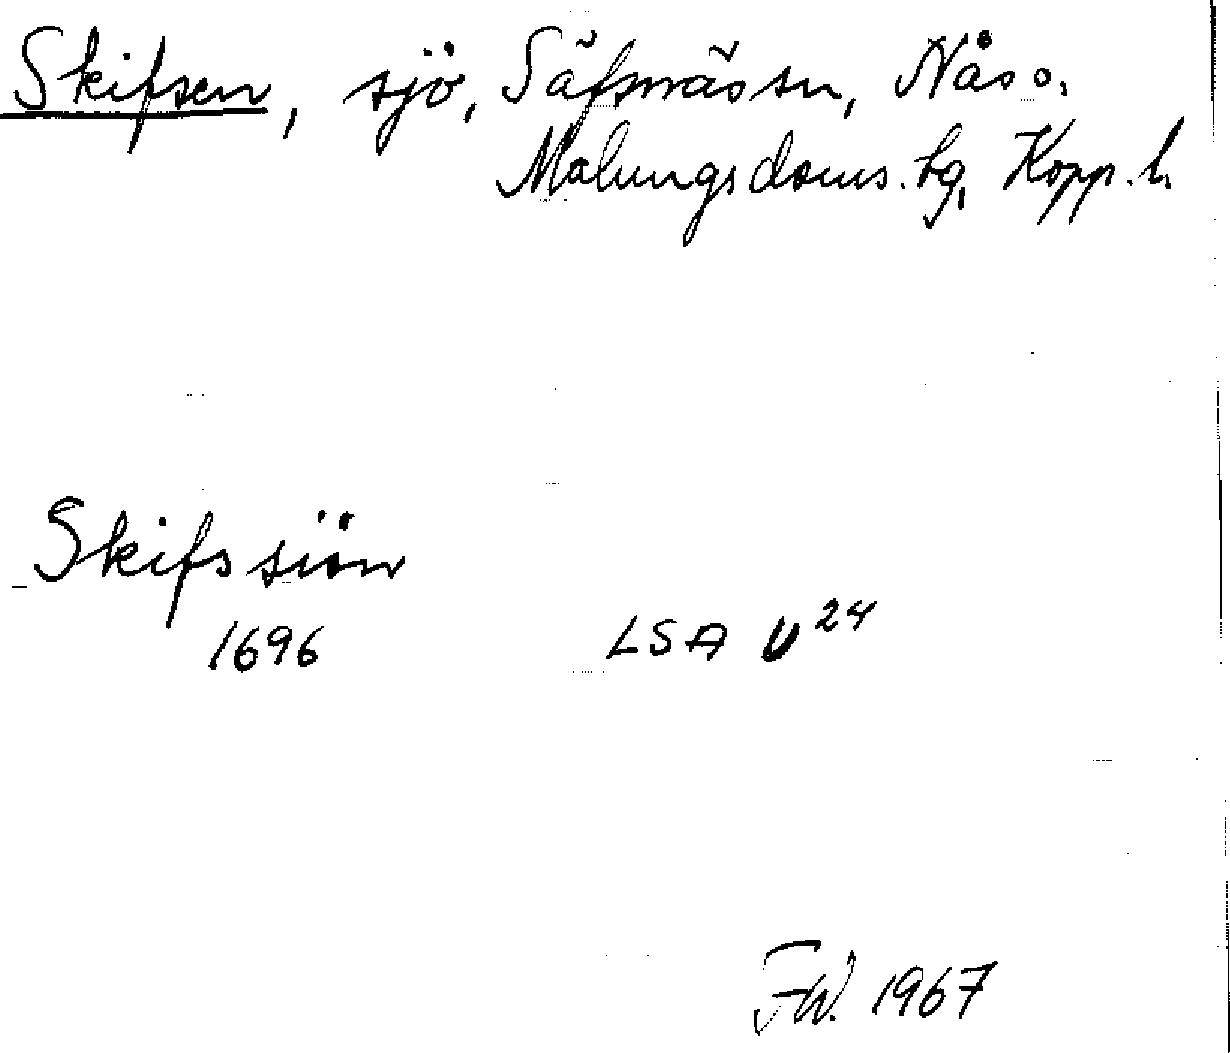 Skifsen, sjö, Säfsnäs sn, Nås o.
Malungs doms. hg, Kopp. l.
Skifssiön
1696 LSA U 24
FW. 1967